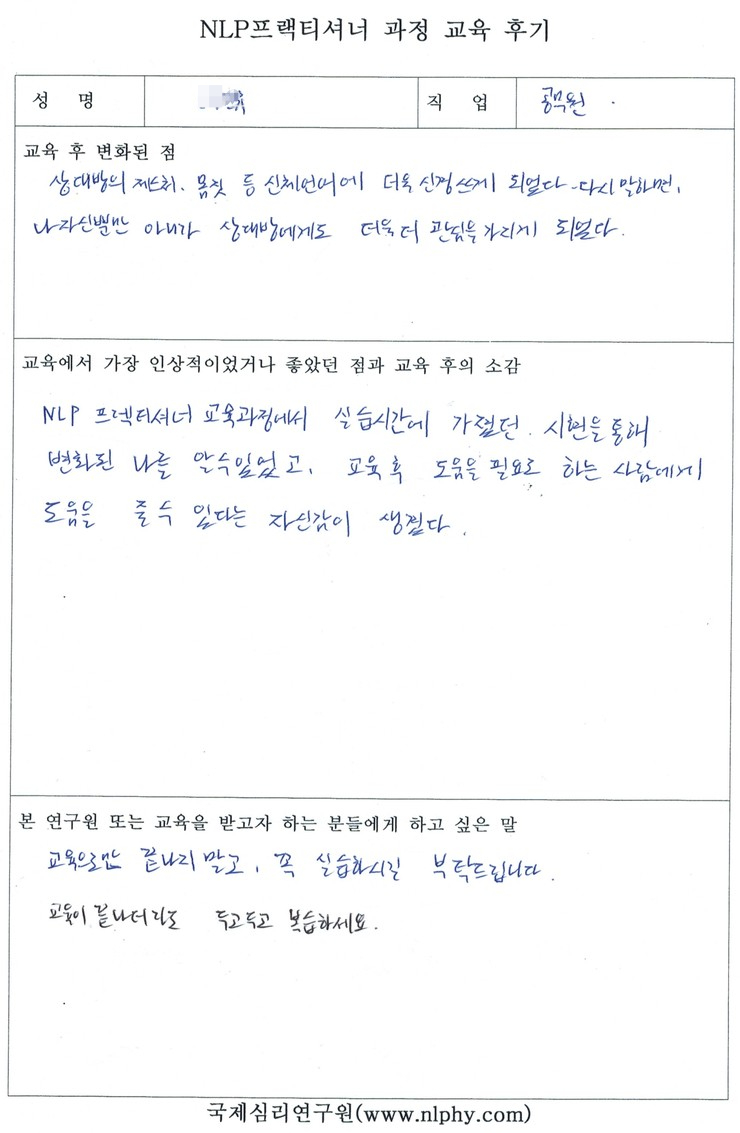 NLP프랙티셔너 과정 교육 후기
성 명
직 업 공무원
교육 후 변화된 점
상대방의 제스처, 몸짓 등 신체언어에 더욱 신경쓰게 되었다. 다시 말하면,
나자신뿐만 아니라 상대방에게도 더욱 더 관심을 가지게 되었다.
교육에서 가장 인상적이었거나 좋았던 점과 교육 후의 소감
NLP 프렉티셔너 교육과정에서 실습시간에 가졌던 시현을 통해
변화된 나를 알수있었고, 교육 후 도움을 필요로 하는 사람에게
도움을 줄 수 있다는 자신감이 생겼다.
본 연구원 또는 교육을 받고자 하는 분들에게 하고 싶은 말
교육으로만 끝나지 말고, 꼭 실습하시길 부탁드립니다.
교육이 끝나더라도 두고두고 복습하세요.
국제심리연구원(www.nlphy.com)